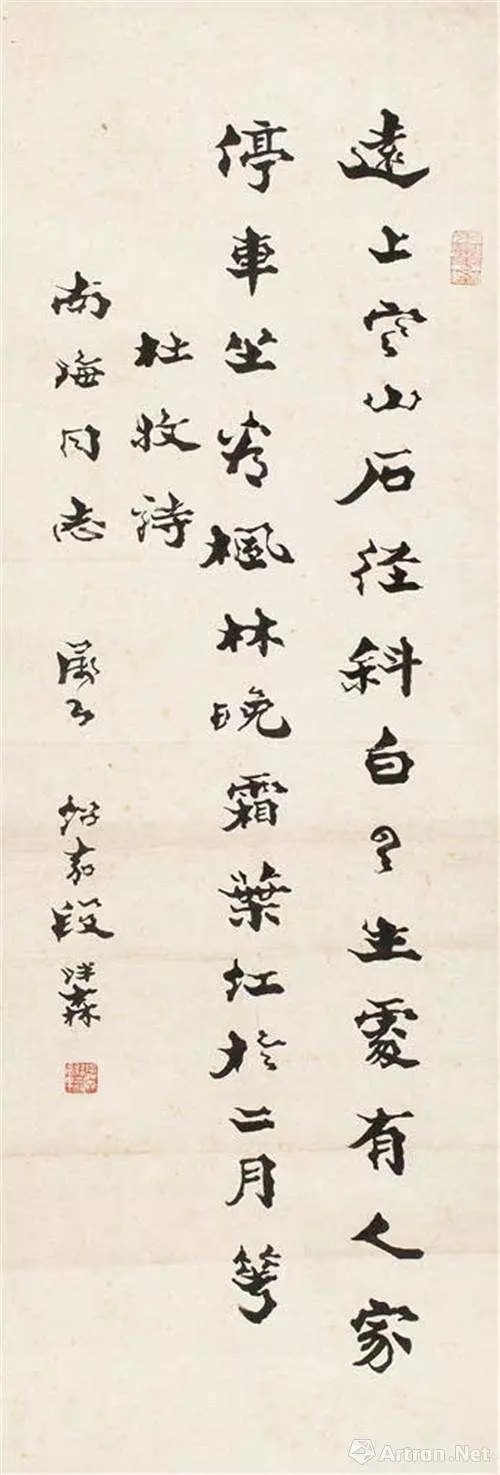 遠上寒山石径斜白云生處有人家
停車坐爱楓林晚霜葉红於二月華
杜牧詩
南海同志 属 段
Artron.Net